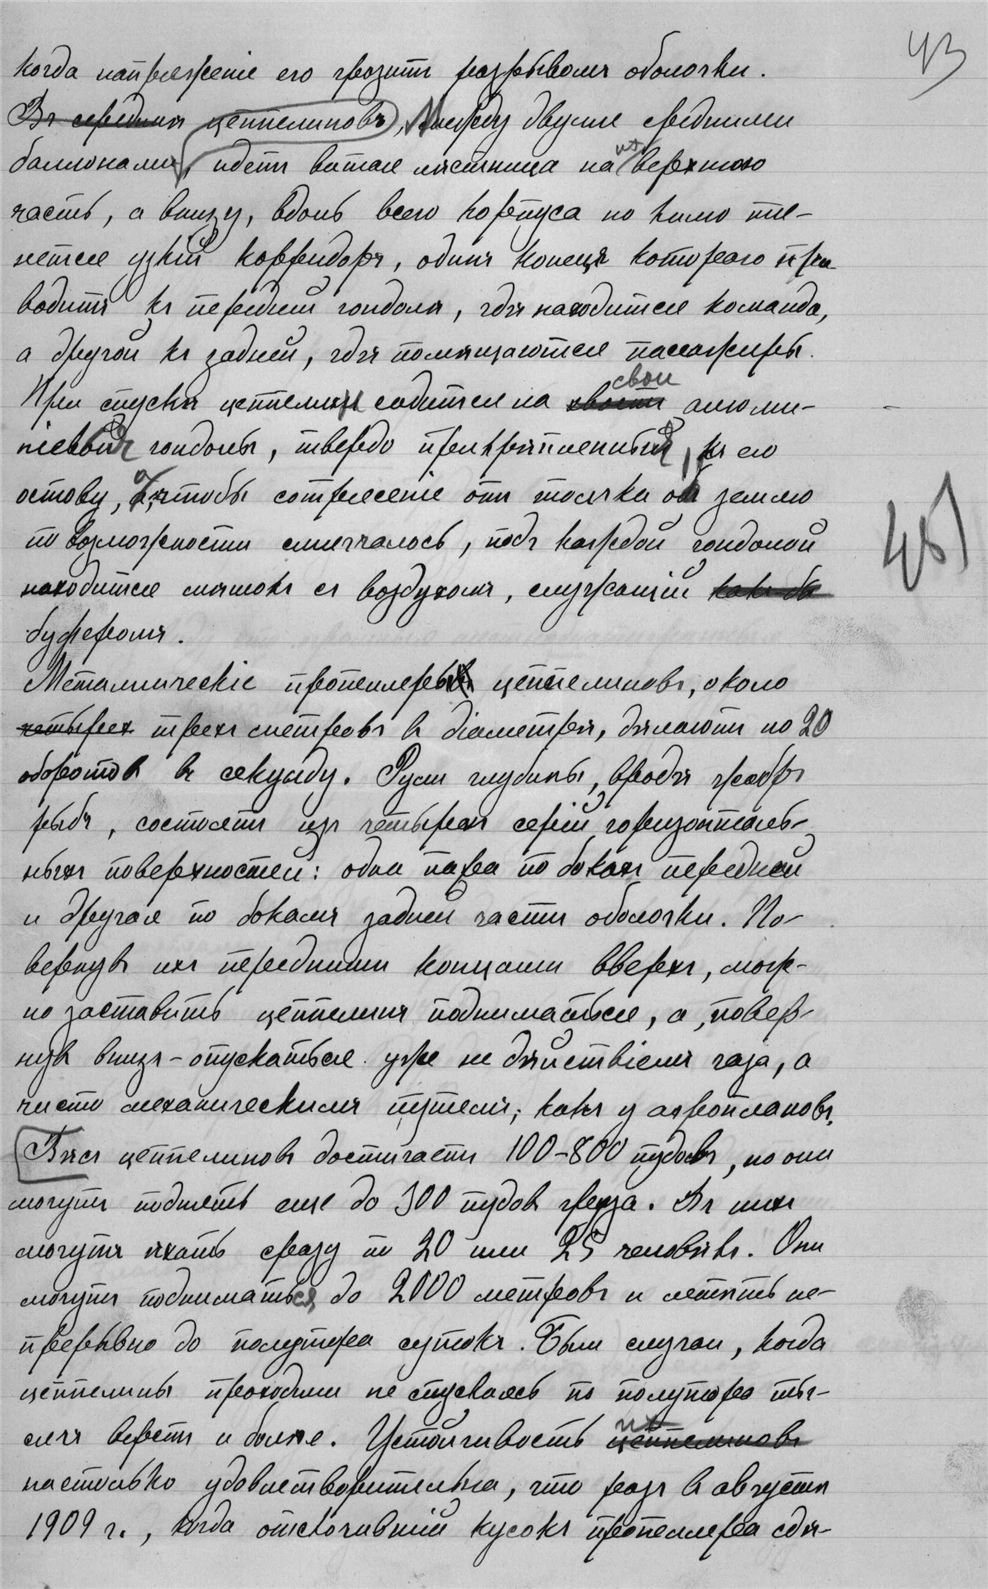 43
когда напряженіе его грозитъ разрывомъ оболочки.
Въ серединѣ цеппелиновъ, между двумя средними
баллонами, идетъ витая лѣстница на ихъ верхнюю
часть, а внизу, вдоль всего корпуса по килю тя-
нется узкій корридоръ, одинъ конецъ котораго при-
водитъ къ передней гондолѣ, гдѣ находится команда,
а другой къ задней, гдѣ помѣщаются пассажиры.
При спускѣ цеппелины садится на свои алюми-
ніевыя гондолы, твердо прикрѣпленныя къ его
остову, а чтобы сотрясеніе отъ толчка об землю
по возможности смягчалось, подъ каждой гондолой
находится мѣшокъ съ воздухомъ, служащій какъ бы
буферомъ.
Металлическіе пропеллеры цеппелиновъ, около
четырех трехъ метровъ в діаметрѣ, дѣлаютъ по 20
оборотов въ секунду. Рули глубины, вродѣ жабръ
рыбъ, состоятъ изъ четырехъ серій горизонталь-
ныхъ поверхностей: одна пара по бокам передней
и другая по бокамъ задней части оболочки. По-
вернув ихъ передними концами вверхъ, мож-
но заставить цеппелинъ подниматься, а, повер-
нув внизъ - опускаться уже не дѣйствіемъ газа, а
чисто механическимъ путемъ, какъ у аэроплановъ.
Вѣсъ цеппелинов достигаетъ 100-800 пудовъ, но они
могутъ поднять еще до 300 пудов груза. Въ них
могутъ ѣхать сразу по 20 или 25 человѣкъ. Они
могутъ подниматься до 2000 метровъ и летѣть не-
прерывно до полутора сутокъ. Были случаи, когда
цеппелины проходили не спускаясь по полуторо ты-
сячъ верстъ и болѣе. Устойчивость их цеппелиновъ
настолько удовлетворительна, что разъ в августѣ
1909 г., когда отскочившій кусокъ пропеллера сдѣ-